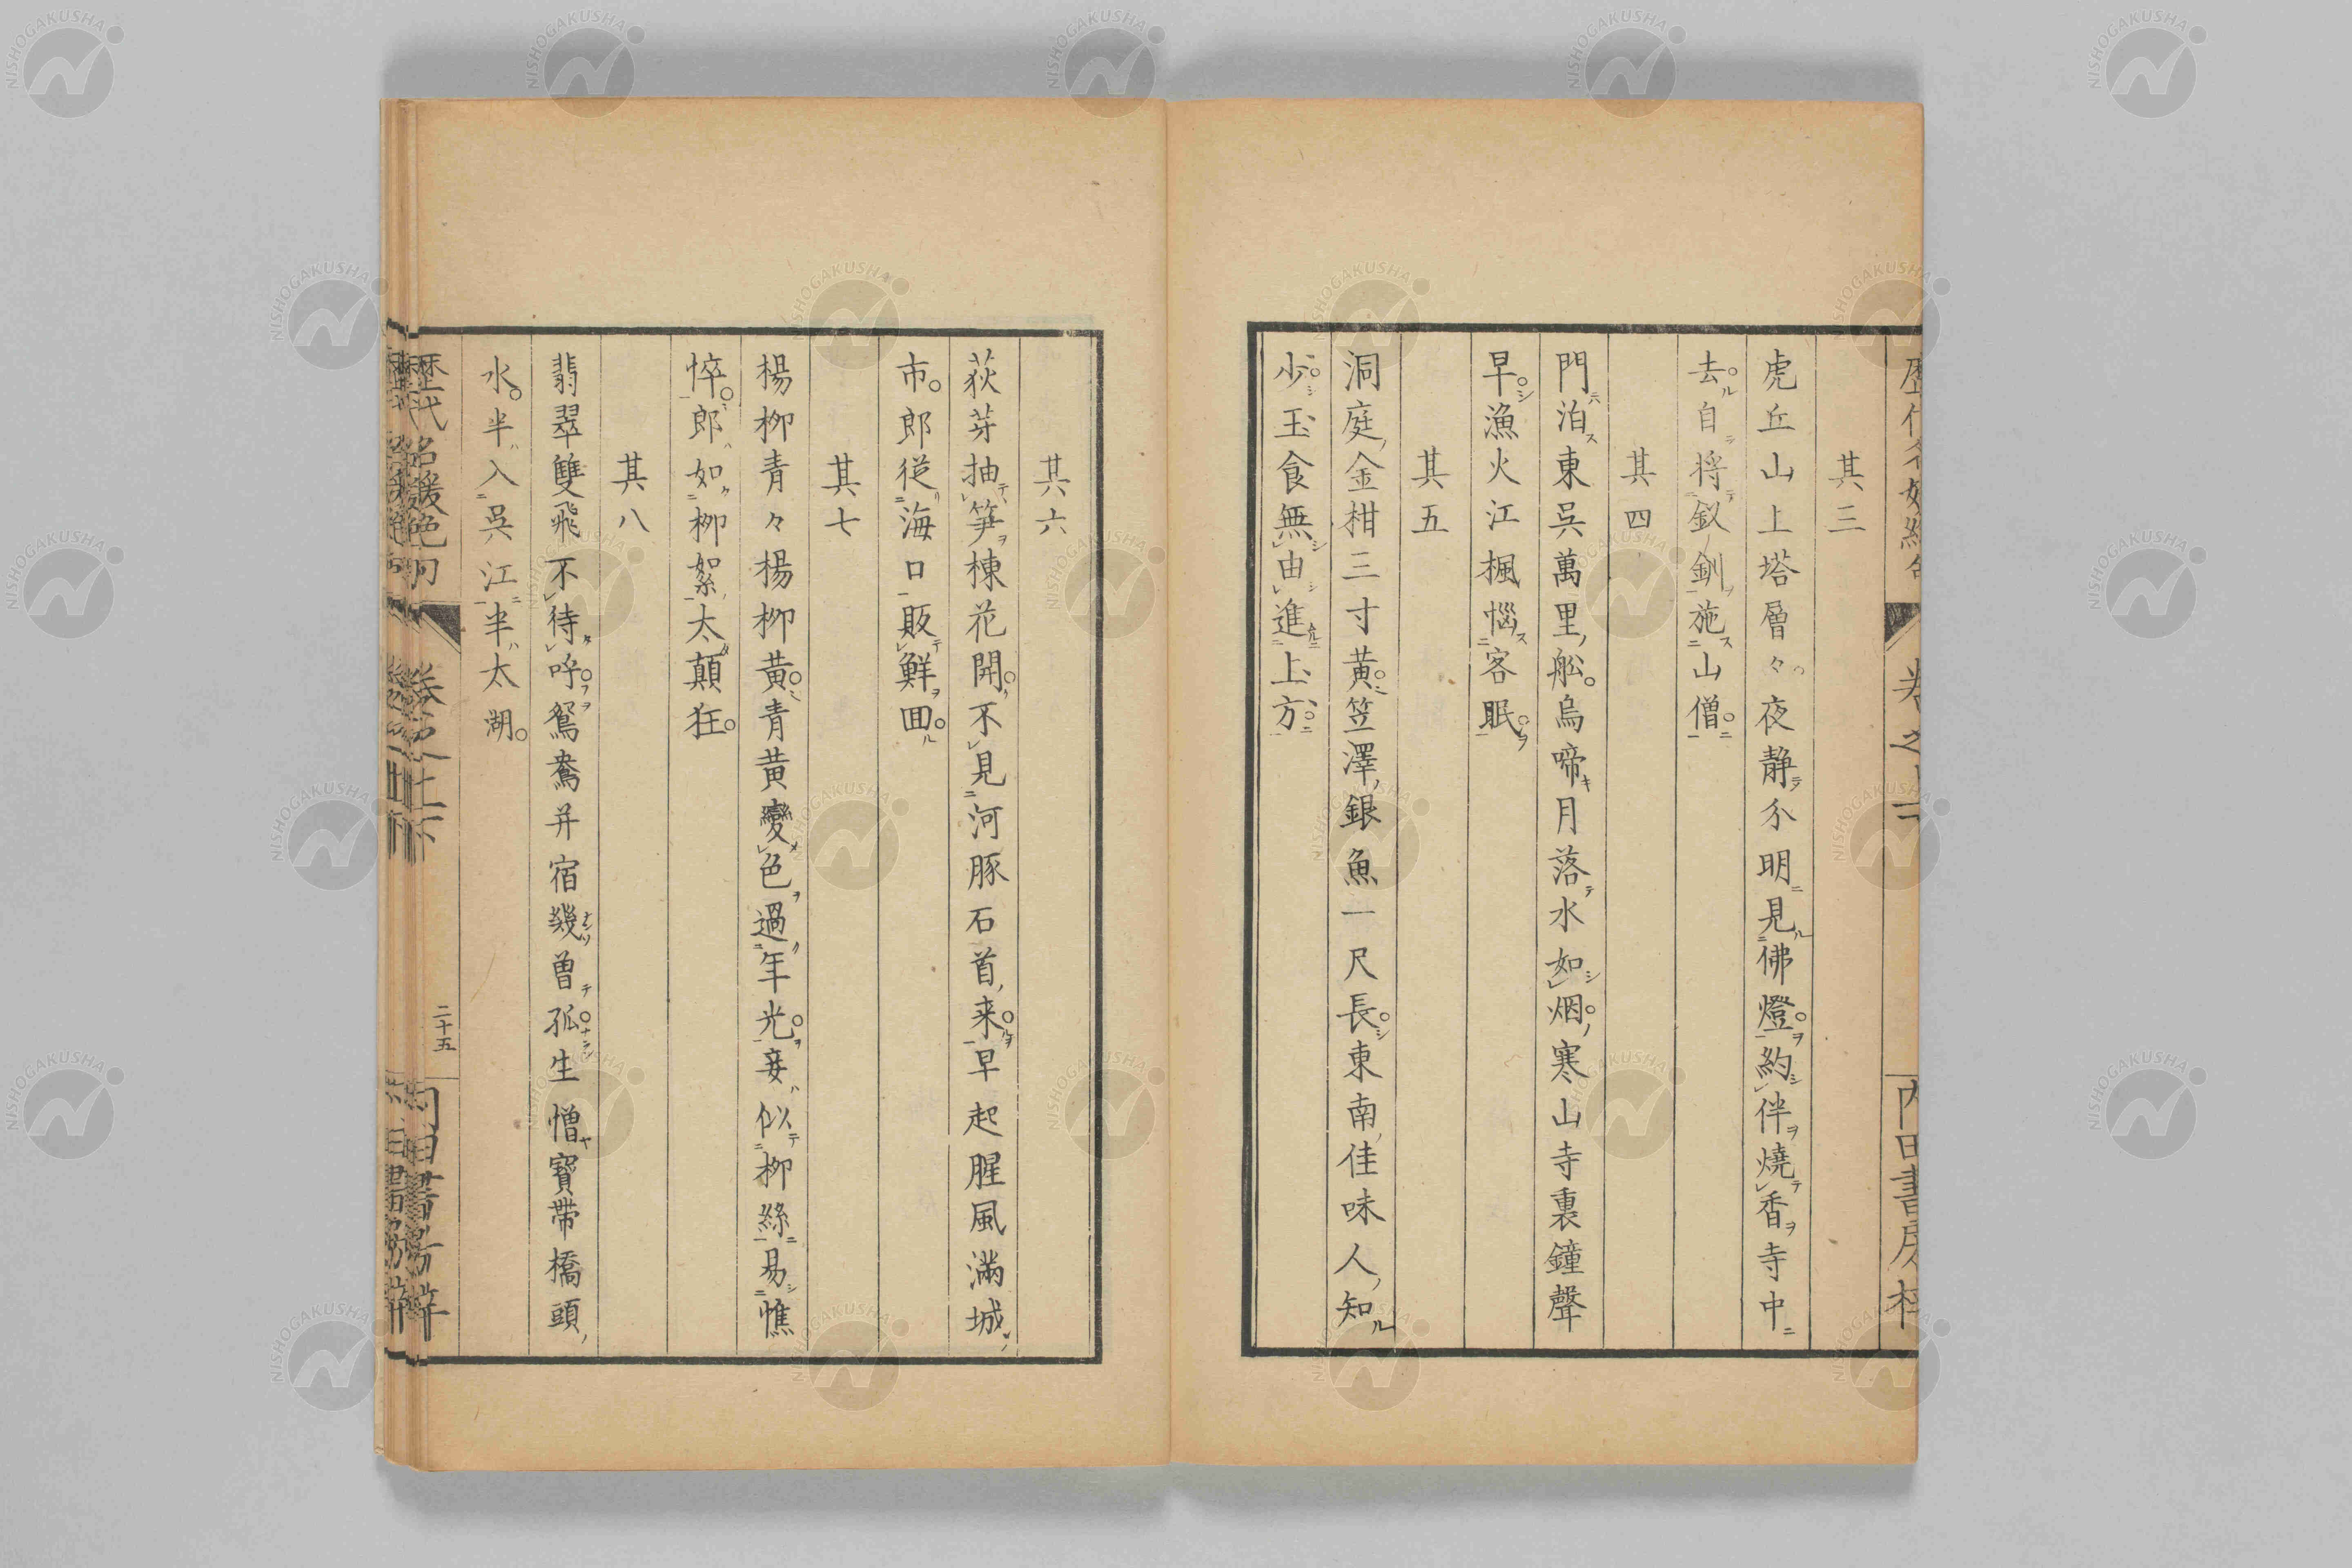 其三
虎丘山上塔層々夜静分明見佛燈約伴燒香寺中
去自将釵釧施山僧
其四
門泊東吳萬里舩烏啼月落水如烟寒山寺裏鐘聲
早漁火江楓惱客眠
其五
洞庭金柑三寸黄笠澤銀魚一尺長東南佳味人知
少玉食無由進上方
其六
荻芽抽笋楝花開不見河豚石首来早起腥風滿城
市郎従海口販鮮囬
其七
楊柳青々楊柳黄青黄變色過年光妾似柳絲易憔
悴郎如柳絮太顛狂
其八
翡翠雙飛不待呼鴛鴦并宿幾曽孤生憎寶帶橋頭
水半入吳江半太湖
二十五
NISHOGAKUSHA